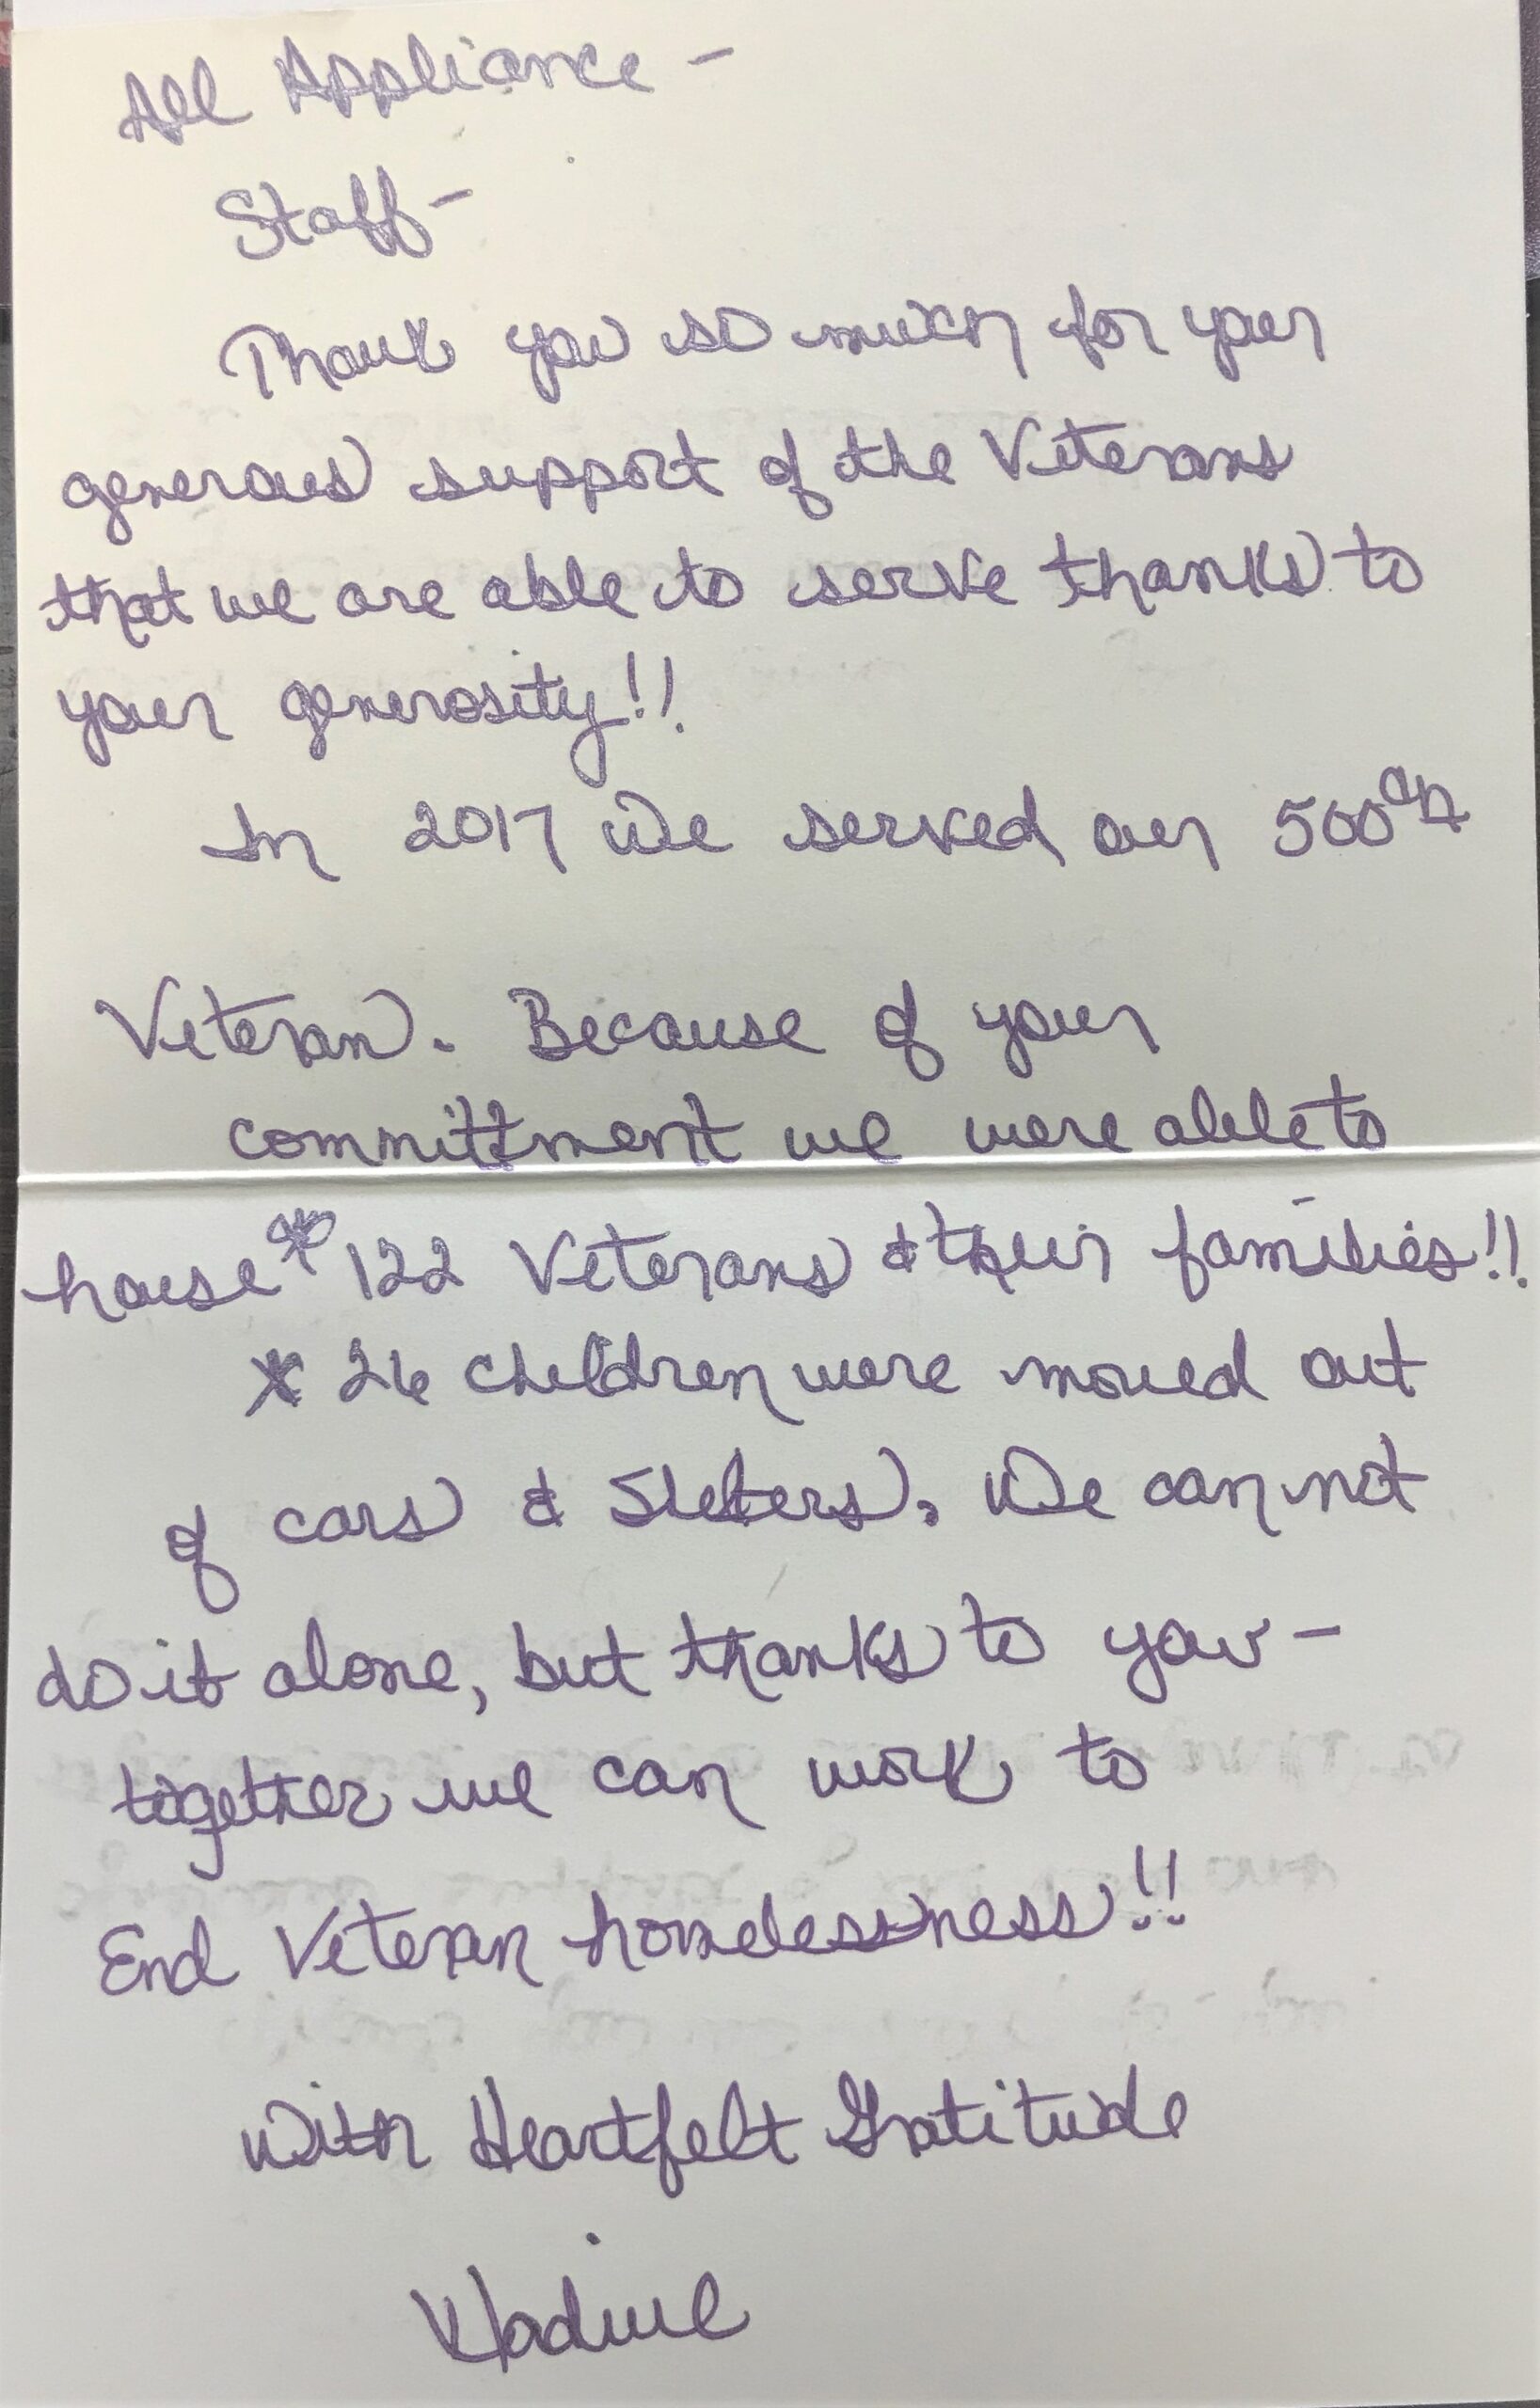 All Appliance -
Staff -
Thank you so much for your
generous support of the Veterans
that we are able to serve thanks to
your generosity!!
In 2017 We served our 500th
Veteran. Because of your
committment we were able to
house 122 Veterans & their families!!
* 26 children were moved out
of cars & Sleters. We can not
do it alone, but thanks to you -
together we can work to
End Veteran homelessness!!
With Heartfelt Gratitude
Nadine